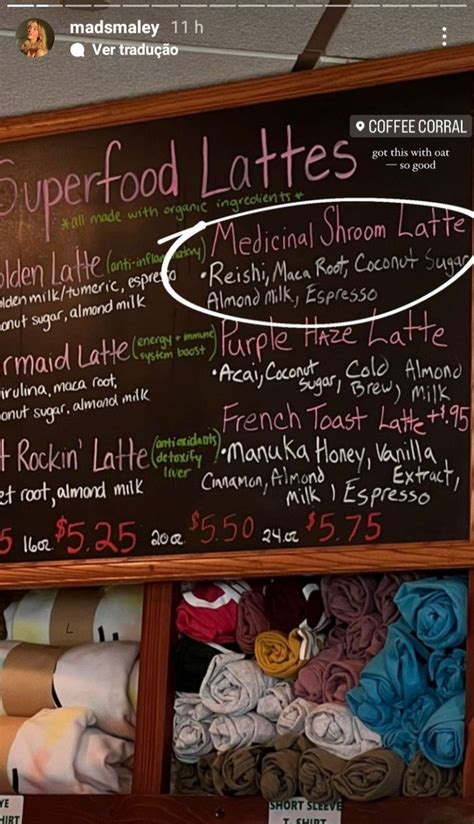 madsmaley 11 h
Ver tradução
COFFEE CORRAL
got this with oat
— so good
Superfood Lattes
*all made with organic ingredients*
olden Latte (anti-inflammatory)
olden milk/tumeric, espresso
onut sugar, almond milk
Medicinal Shroom Latte
• Reishi, Maca Root, Coconut Sugar
Almond Milk, Espresso
rmaid Latte (energy + immune
system boost)
irulina, maca root,
onut sugar, almond milk
Purple Haze Latte
• Acai, Coconut Sugar, Cold Brew, Almond Milk
French Toast Latte +$.95
• Manuka Honey, Vanilla Extract,
Cinnamon, Almond Milk, Espresso
t Rockin' Latte (antioxidants
detoxify
liver)
et root, almond milk
5 16oz. $5.25 20oz. $5.50 24oz. $5.75
L
YE
HIRT
SHORT SLEEVE
T-SHIRT